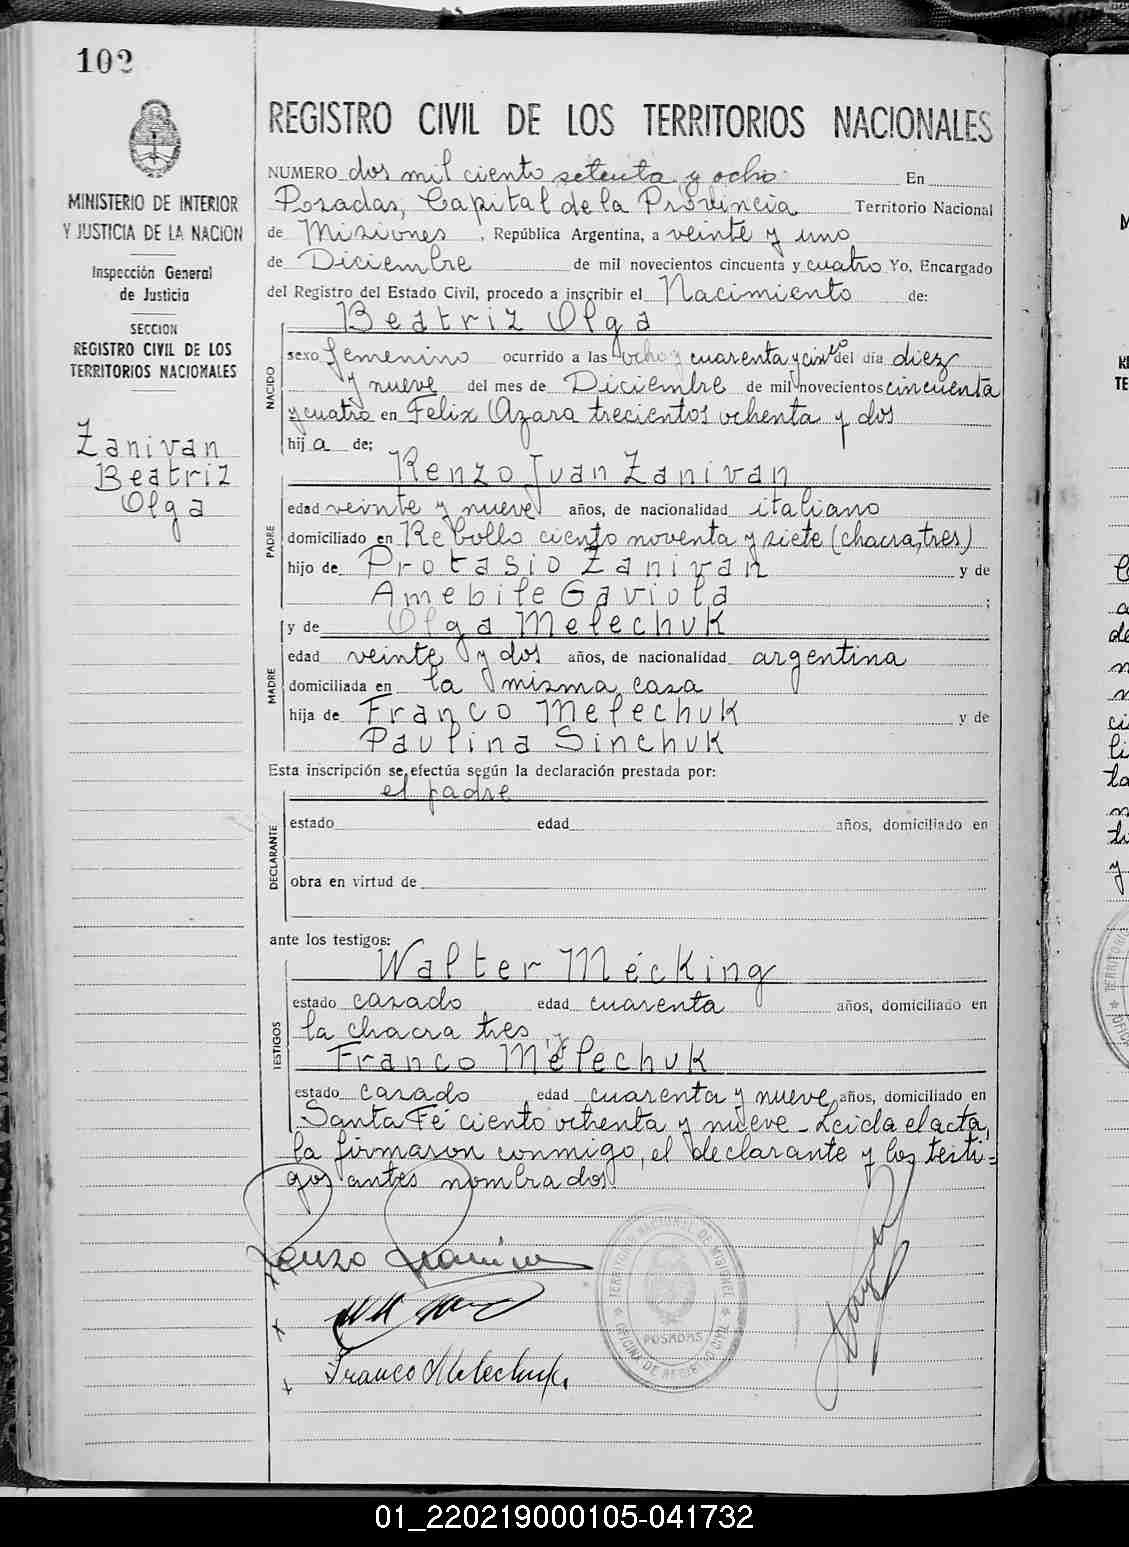 102
MINISTERIO DE INTERIOR
Y JUSTICIA DE LA NACION
Inspección General
de Justicia
SECCION
REGISTRO CIVIL DE LOS
TERRITORIOS NACIONALES
Zanivan
Beatriz
Olga
REGISTRO CIVIL DE LOS TERRITORIOS NACIONALES
NUMERO dos mil ciento setenta y ocho En
Posadas, Capital de la Provincia Territorio Nacional
de Misiones, República Argentina, a veinte y uno
de Diciembre de mil novecientos cincuenta y cuatro Yo, Encargado
del Registro del Estado Civil, procedo a inscribir el Nacimiento de:
NACIDO
Beatriz Olga
sexo femenino ocurrido a las ocho y cuarenta y cinco del día diez
y nueve del mes de Diciembre de mil novecientos cincuenta
y cuatro en Felix Azara trecientos ochenta y dos
hija de;
PADRE
Renzo Juan Zanivan
edad veinte y nueve años, de nacionalidad italiano
domiciliado en Rebollo ciento noventa y siete (chacra, tres)
hijo de Protasio Zanivan y de
Amebile Gaviola ;
MADRE
y de Olga Melechuk
edad veinte y dos años, de nacionalidad argentina
domiciliada en la misma casa
hija de Franco Melechuk y de
Paulina Sinchuk
Esta inscripción se efectúa según la declaración prestada por:
DECLARANTE
el padre
estado edad años, domiciliado en
obra en virtud de
ante los testigos:
TESTIGOS
Walter Mécking
estado casado edad cuarenta años, domiciliado en
la chacra tres y
Franco Mélechuk
estado casado edad cuarenta y nueve años, domiciliado en
Santa Fé ciento ochenta y nueve - Leida el acta,
la firmaron conmigo, el declarante y los testi=
gos antes nombrados.
Renzo Zanivan
TERRITORIO NACIONAL DE MISIONES
POSADAS
OFICINA DE REGISTRO CIVIL
Franco Melechuk.
01_220219000105-041732